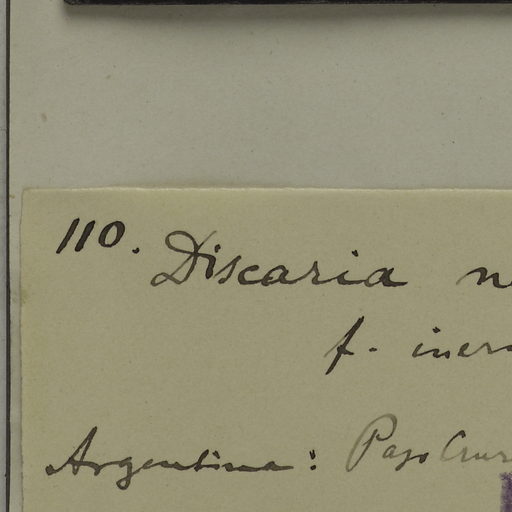 110. Discaria n
f. iner
Argentina: Paso Cru